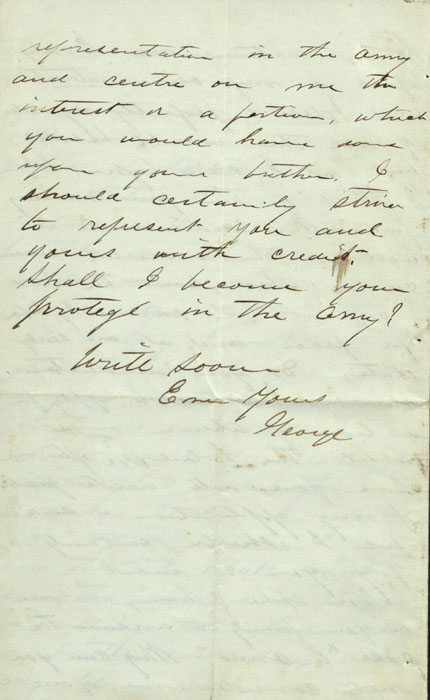 representation in the army
and centre on me the
interest or a portion, which
you would have some
upon your brother. I
should certainly strive
to represent you and
yours with credit.
Shall I become your
protegé in the army?
Write soon
Ever Yours
George